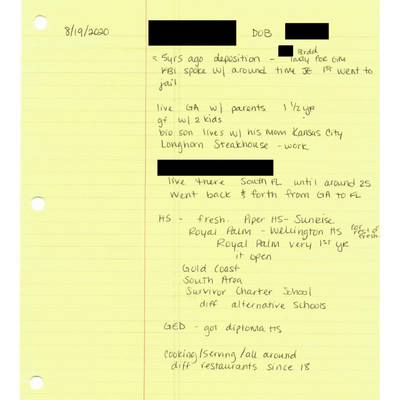 8/19/2020 DOB
≈ 5yrs ago deposition - Indy for GM
FBI spoke w/ around time JE 1st went to
jail
live GA w/ parents 1 1/2 yr
gf w/ 2 kids
bio son lives w/ his mom Kansas City
Longhorn Steakhouse - work
live there South FL until around 25
went back & forth from GA to FL
HS - fresh. Piper HS - Sunrise
Royal Palm - Wellington HS for rest of fresh
Royal Palm very 1st yr
it open
Gold Coast
South Area
Survivor Charter School
diff alternative schools
GED - got diploma HS
Cooking/serving/all around
diff restaurants since 18